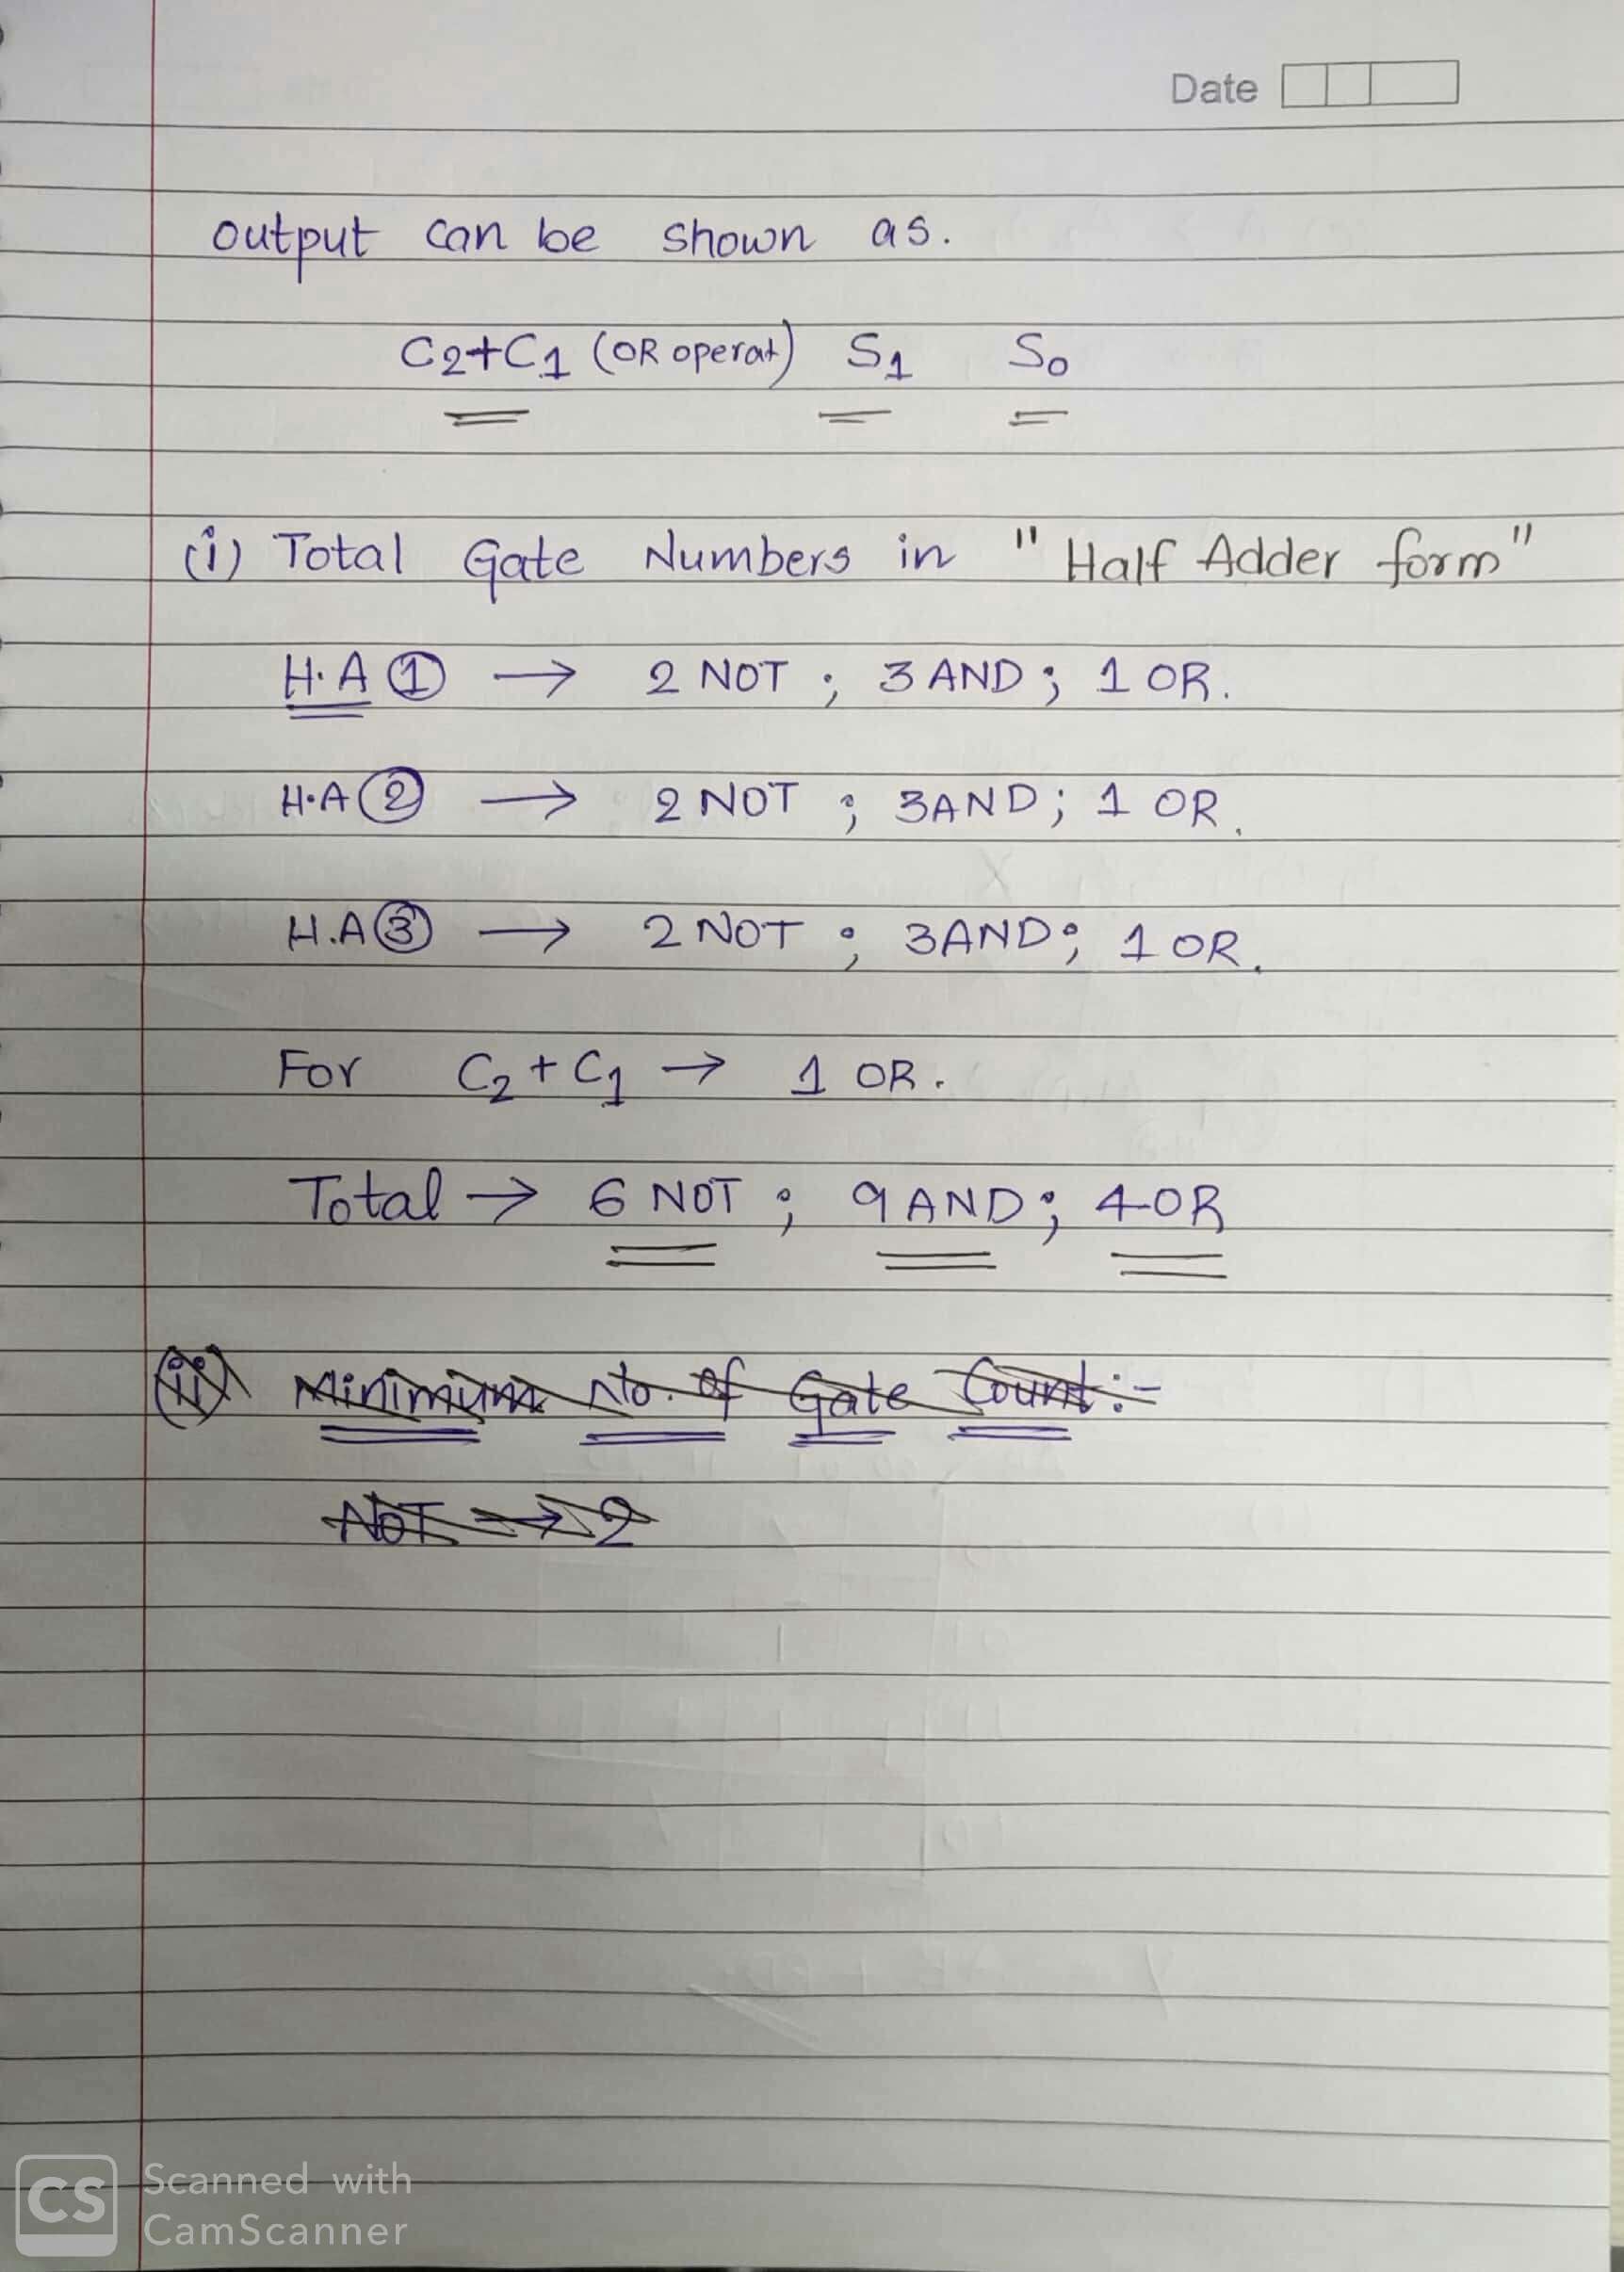 Date
output can be shown as.
C2+C1 (OR operat) S1 S0
(i) Total Gate Numbers in "Half Adder form"
H.A ① → 2 NOT ; 3 AND ; 1 OR.
H.A ② → 2 NOT ; 3AND ; 1 OR.
H.A ③ → 2 NOT ; 3AND ; 1 OR.
For C2 + C1 → 1 OR.
Total → 6 NOT ; 9 AND ; 4 OR
(ii) Minimum No. of Gate Count :-
NOT → 2
CS Scanned with
CamScanner